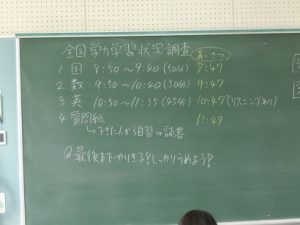 全国学力学習状況調査 あいさつ
1 国 8:50～9:40(50分) 8:47
2 数 9:50～10:40(50分) 9:47
3 英 10:50～11:35(45分) 10:47(リスニングあり)
4 質問紙 11:47
→できた人から自習or読書
◎最後までやりきる!しっかりうめよう!